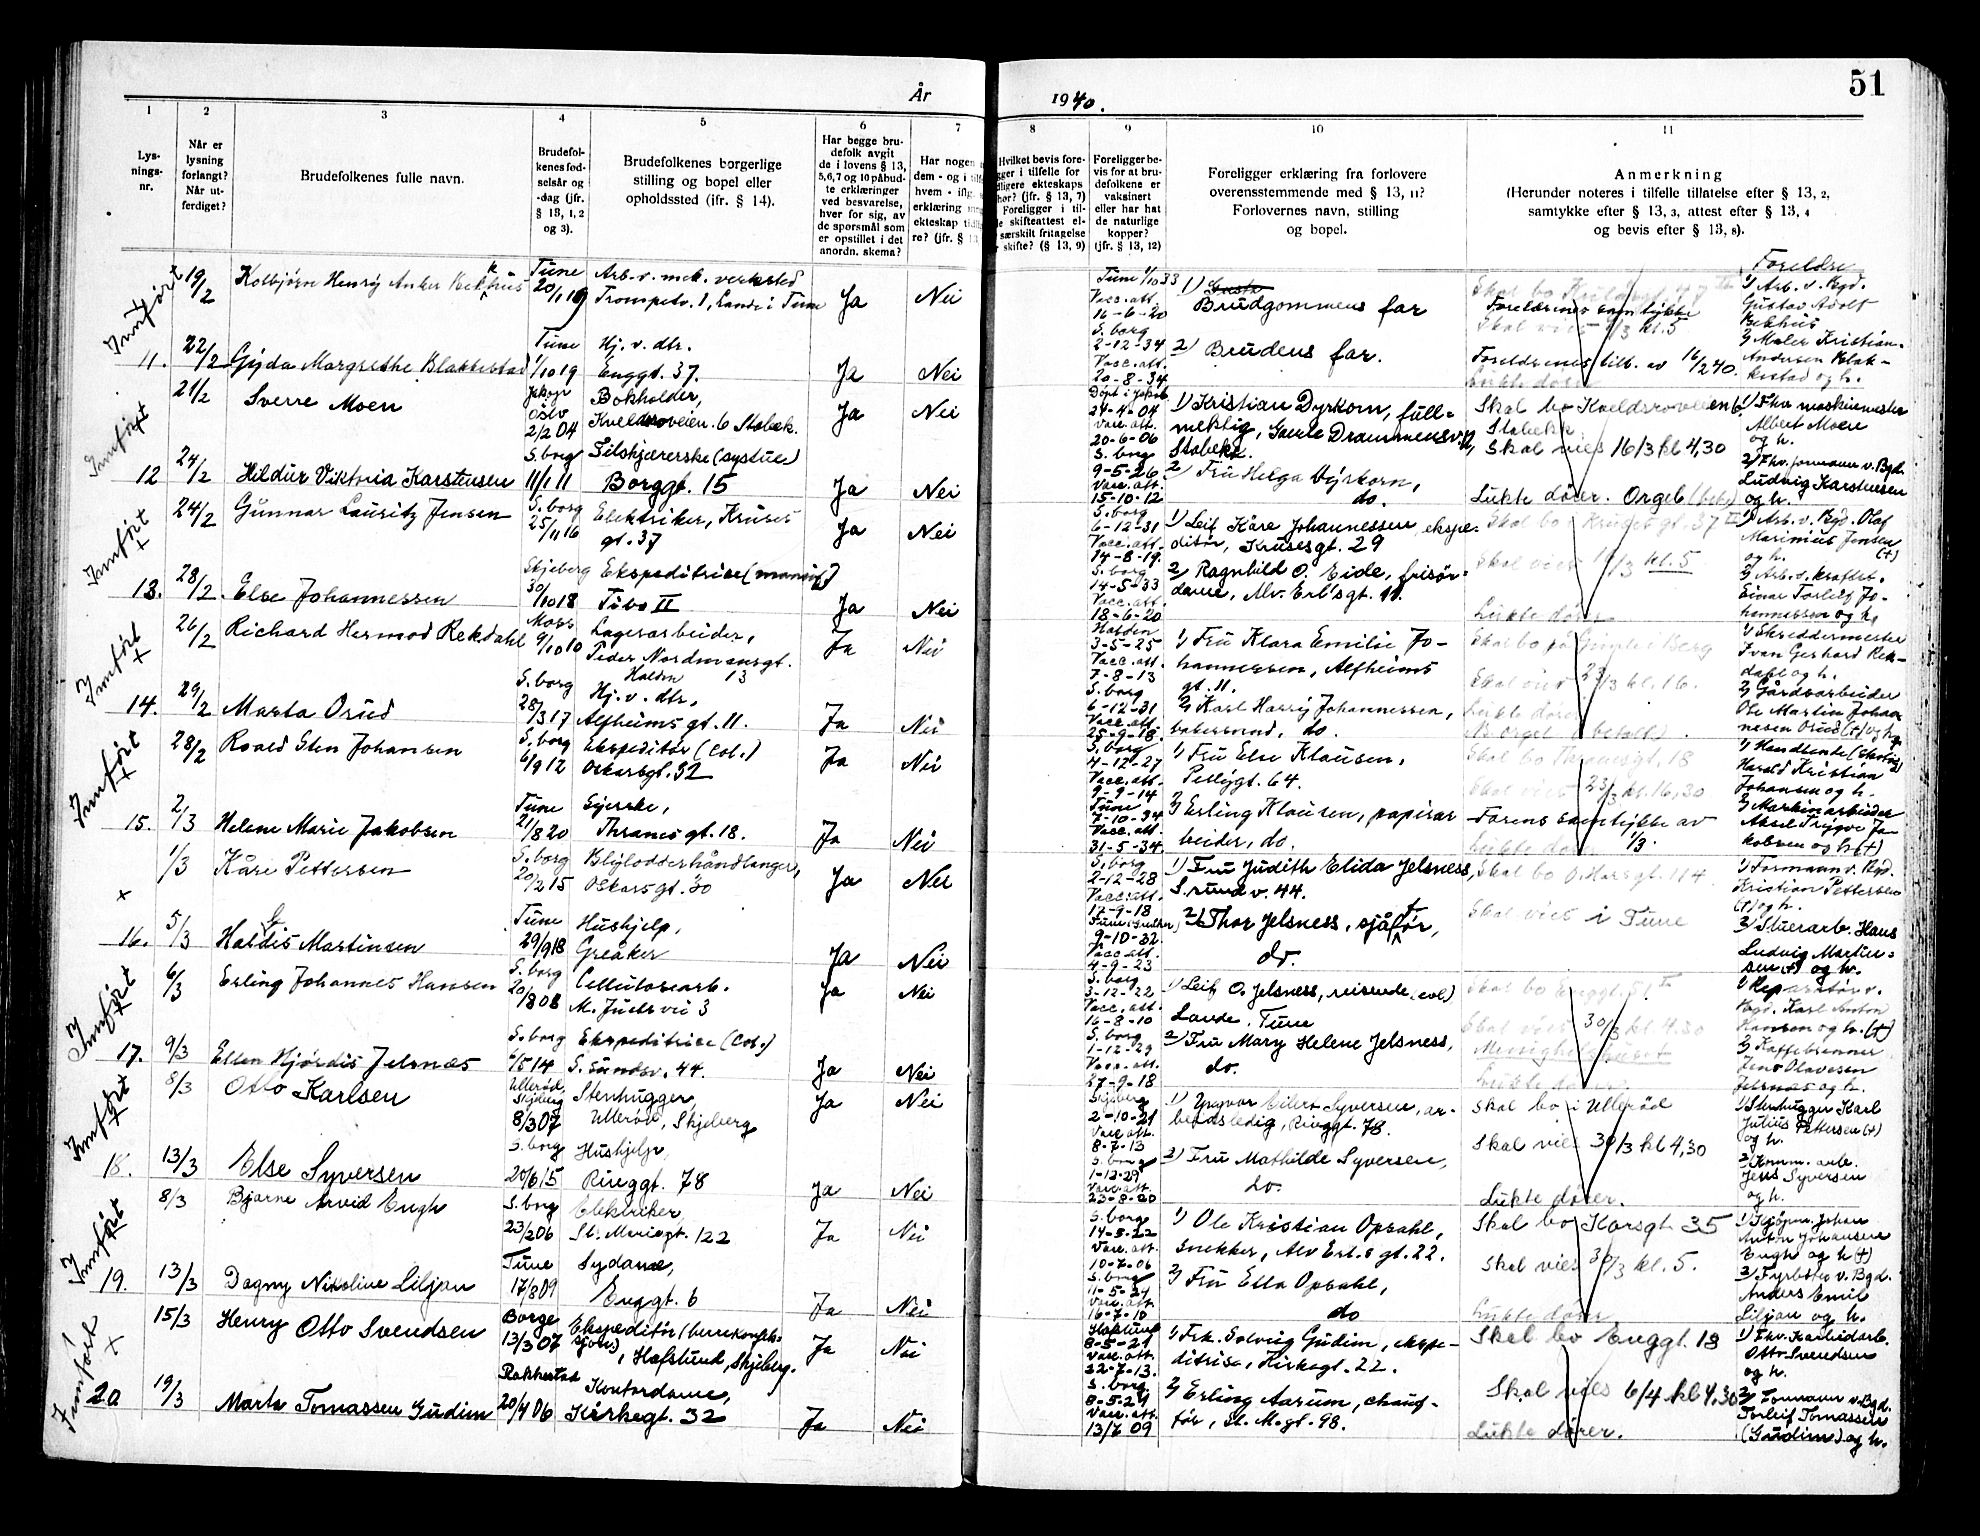 51
År
1940.
1 2 3 4 5 6 7 8 9 10 11
Lys-
nings-
nr.
Når er
lysning
forlangt?
Når ut-
ferdiget?
Brudefolkenes fulle navn.
Brudefol-
kenes fød-
selsår og
-dag (jfr.
§ 13, 1, 2
og 3).
Brudefolkenes borgerlige
stilling og bopel eller
opholdssted (ifr. § 14).
Har begge bru-
defolk avgit
de i lovens § 13,
5, 6, 7 og 10 påbud-
te erklæringer
ved besvarelse,
hver for sig, av
de spørsmål som
er opstillet i det
anordn. skema?
Har nogen
dem - og i
hvem - iflg.
erklæring
ekteskap
re? (jfr. §
Hvilket bevis fore-
gger i tilfelle for
dligere ekteskaps
hør? (jfr. § 13, 7)
Foreligger i til-
e skifteattest el-
særskilt fritagelse
skifte? (§ 13, 9)
Foreligger be-
vis for at bru-
defolkene er
vaksinert
eller har hat
de naturlige
kopper?
(jfr. § 13, 12)
Foreligger erklæring fra forlovere
overensstemmende med § 13, 11?
Forlovernes navn, stilling
og bopel.
Anmerkning
(Herunder noteres i tilfelle tillatelse efter § 13, 2,
samtykke efter § 13, 3, attest efter § 13, 4
og bevis efter § 13, 8).
Foreldre
Innført
19/2 Kolbjørn Henry Anker Bekkhus Tune 20/1 19 Arb. v. mek. verksted
Trompetv. 1, Lande i Tune Ja Nei
Tune 1/10 33
Vacc. att.
16-6-20
1) Brudgommens far
Foreldrenes samtykke
1) Arb. v. Bgd.
Gustav Adolf
Bekhus
11. 22/2 Gyda Margrethe Blakkestad Tune 1/10 19 Hj. v. dtr.
Enggt. 37. Ja Nei
S. borg
2-12-34
Vacc. att.
20-8-34
2) Brudens far.
Foreldrenes till. av 16/2 40.
2) Maler Kristian
Andersen Blak-
kestad og h.
Innført
21/2 Sverre Moen Oslo 2/2 04 Bokholder,
Kveldsroveien 6 Stabek. Ja Nei
24-4-04
Vacc. att.
20-6-06
1) Kristian Dyrkorn, full-
mektig, Gamle Drammensv.
Stabekk.
Skal bo Kveldsroveien 6,
Stabekk.
Skal vies 16/3 kl 4,30
1) Fhv. maskinmester
Albert Moen
og h.
12 24/2 Hildur Viktoria Karstensen S. borg 11/1 11 Tilskjærerske (systue)
Borggt. 15 Ja Nei
S. borg
9-5-26
Vacc. att.
15-10-12
2) Fru Helga Dyrkorn,
do.
Lukte dører. Orgel (bet.)
2) Fhv. formann v. Bgd.
Ludvig Karstensen
og h.
Innført
24/2 Gunnar Lauritz Jensen S. borg 25/11 16 Elektriker, Kruses
gt. 37 Ja Nei
S. borg
6-12-31
Vacc. att.
14-8-19.
1) Leif Kåre Johannessen, ekspe-
ditør, Krusesgt. 29
Skal bo Krusesgt. 37 II
Skal vies 16/3 kl. 5
1) Arb. v. Bgd. Olaf
Marinius Jensen
og h. (+)
13. 28/2 Else Johannessen Skjeberg 30/10 18 Ekspeditrise (manuf.)
Tibo II Ja Nei
S. borg
14-5-33
Vacc. att.
18-6-20
2) Ragnhild O. Eide, frisør-
dame, Alv. Erl'sgt. 11.
Lukte dører
2) Arb. v. kraftst.
Einar Torleif Jo-
hannessen og h.
Innført
26/2 Richard Hermod Rekdahl Moss 9/10 10 Lagerarbeider,
Peder Nordmansgt.
Halden 13 Ja Nei
Halden
3-5-25
Vacc. att.
7-8-13
1) Fru Klara Emilie Jo-
hannessen, Alfheims
gt. 11.
1) Skreddermester
Ivan Gerhard Rek-
dahl og h.
14. 29/2 Marta Orud S. borg 28/3 17 Hj. v. dtr,
Alfheims gt. 11. Ja Nei
S. borg
6-12-31
Vacc. att.
25-9-18
2) Karl Harry Johannessen,
bakersvend, do.
Lukte dører
2) Gårdsarbeider
Ole Martin Johan
nesen Orud (+) og h.
Innført
28/2 Roald Sten Johansen S. borg 6/9 12 Ekspeditør (col.)
Oskarsgt. 32 Ja Nei
S. borg
4-12-27
Vacc. att.
9-9-14
1) Fru Else Klausen,
Pellygt. 64.
Skal bo Thranesgt. 18
Skal vies 23/3 kl. 16,30
Harald Kristian
Johansen og h.
15. 2/3 Helene Marie Jakobsen Tune 21/8 20 Syerske,
Thranesgt. 18. Ja Nei
Tune
7-10-34
Vacc. att.
31-5-34
2) Erling Klausen, papirar
beider, do.
Farens samtykke av
Lukte dører 1/3.
2) Maskinarbeider
Aksel Trygve Ja-
kobsen og h (+)
1/3 Kåre Pettersen S. borg 20/2 15 Blylodderhåndlanger,
Oskarsgt. 30 Ja Nei
S. borg
2-12-28
Vacc. att.
12-9-18
1) Fru Judith Elida Jelsness,
S. sund v. 44.
Skal bo Oskarsgt. 114
Skal vies i Tune
1) Formann v. Bgd.
Kristian Pettersen
(+) og h.
16. 5/3 Haldis Martinsen Tune 29/9 18 Hushjelp,
Greåker Ja Nei
9-10-32
Vacc. att.
4-9-23
2) Thor Jelsness, sjåfør,
do.
2) Stuerarb. Hans
Ludvig Martin-
sen (+) og h.
Innført
6/3 Erling Johannes Hansen S. borg 20/8 08 Cellulosearb.
M. Juels vei 3 Ja Nei
S. borg
3-12-22
Vacc. att.
16-8-10
1) Leif O. Jelsness, reisende (col)
Lande, Tune
Skal bo Enggt. 51
Skal vies 30/3 kl 4.30
Menighetshuset
1) Reparatør v.
Bgd. Karl Anton
Hansen og h. (+)
17. 9/3 Ellen Hjørdis Jelsnæs S. borg 6/5 14 Ekspeditrise (col.)
S. sundsv. 44. Ja Nei
S. borg
1-12-29
Vacc. att.
27-9-18
2) Fru Mary Helene Jelsness,
do.
Lukte dører.
2) Kaffebrenner
Jens Olavesen
Jelsnæs og h.
Innført
8/3 Otto Karlsen Ullerød, Skjeberg 8/3 07 Stenhugger,
Ullerød, Skjeberg Ja Nei
Skjeberg
2-10-21
Vacc. att.
8-7-13
1) Yngvar Eilert Syversen, ar-
beidsledig, Ringgt. 78.
Skal bo i Ullerød
Skal vies 30/3 kl 4,30
1) Stenhugger Karl
Julius Pettersen (+)
og h.
18. 13/3 Else Syversen S. borg 20/6 15 Hushjelp,
Ringgt. 78 Ja Nei
S. borg
1-12-29
Vacc. att.
23-8-20
2) Fru Mathilde Syversen,
do.
Lukte dører.
2) Komm. arb.
Jens Syversen
og h.
Innført
8/3 Bjarne Arvid Engh S. borg 23/2 06 Elektriker
St. Mariegt. 122 Ja Nei
S. borg
14-5-22
Vacc. att.
10-7-06
1) Ole Kristian Opsahl,
snekker, Alv Erl.s gt. 22.
Skal bo Korsgt. 35
Skal vies 30/3 kl. 5.
Anton Johansen
Engh og h (+)
19. 13/3 Dagny Nikoline Liljan Tune 17/8 09 Sydame,
Enggt. 6 Ja Nei
S. borg
11-5-24
Vacc. att.
16-7-10
2) Fru Ella Opsahl,
do
Lukte dører
2) Fyrbøter v. Bgd.
Anders Emil
Liljan og h.
Innført
15/3 Henry Otto Svendsen Borge 13/3 07 Ekspeditør
, Hafslund, Skjeberg. Ja Nei
Hafslund
8-5-21
Vacc. att.
22-7-13.
1) Frk. Solveig Gudim, ekspe-
ditrise, Kirkegt. 22.
Skal bo Enggt. 13
1) Fhv. Karbidarb.
Otto Svendsen
og h.
20 19/3 Marta Tomassen Gudim Rakkestad 20/4 06 Kontordame,
Kirkegt. 32 Ja Nei
S. borg
8-5-21
Vacc. att.
13/6 09
2) Erling Aarum, chauf-
før, St. M. gt. 98.
Skal vies 6/4 kl 4.30
Lukte dører.
2) Formann v. Bgd.
Torleif Tomassen
(Gudim) og h.